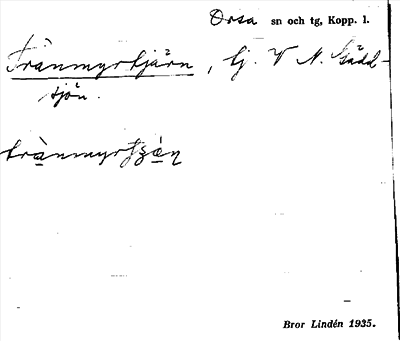 Orsa sn och tg, Kopp. l.
Trànmyrtjärn, tj. V N. Gädd-
sjön.
trànmyrtʂä́n
Bror Lindén 1935.